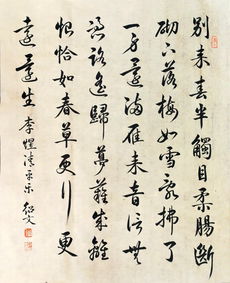 別來春半觸目柔腸斷
砌下落梅如雪亂拂了
一身還滿雁來音信無
憑路遙歸夢難成離
恨恰如春草更行更
遠還生 李煜清平乐 紹文